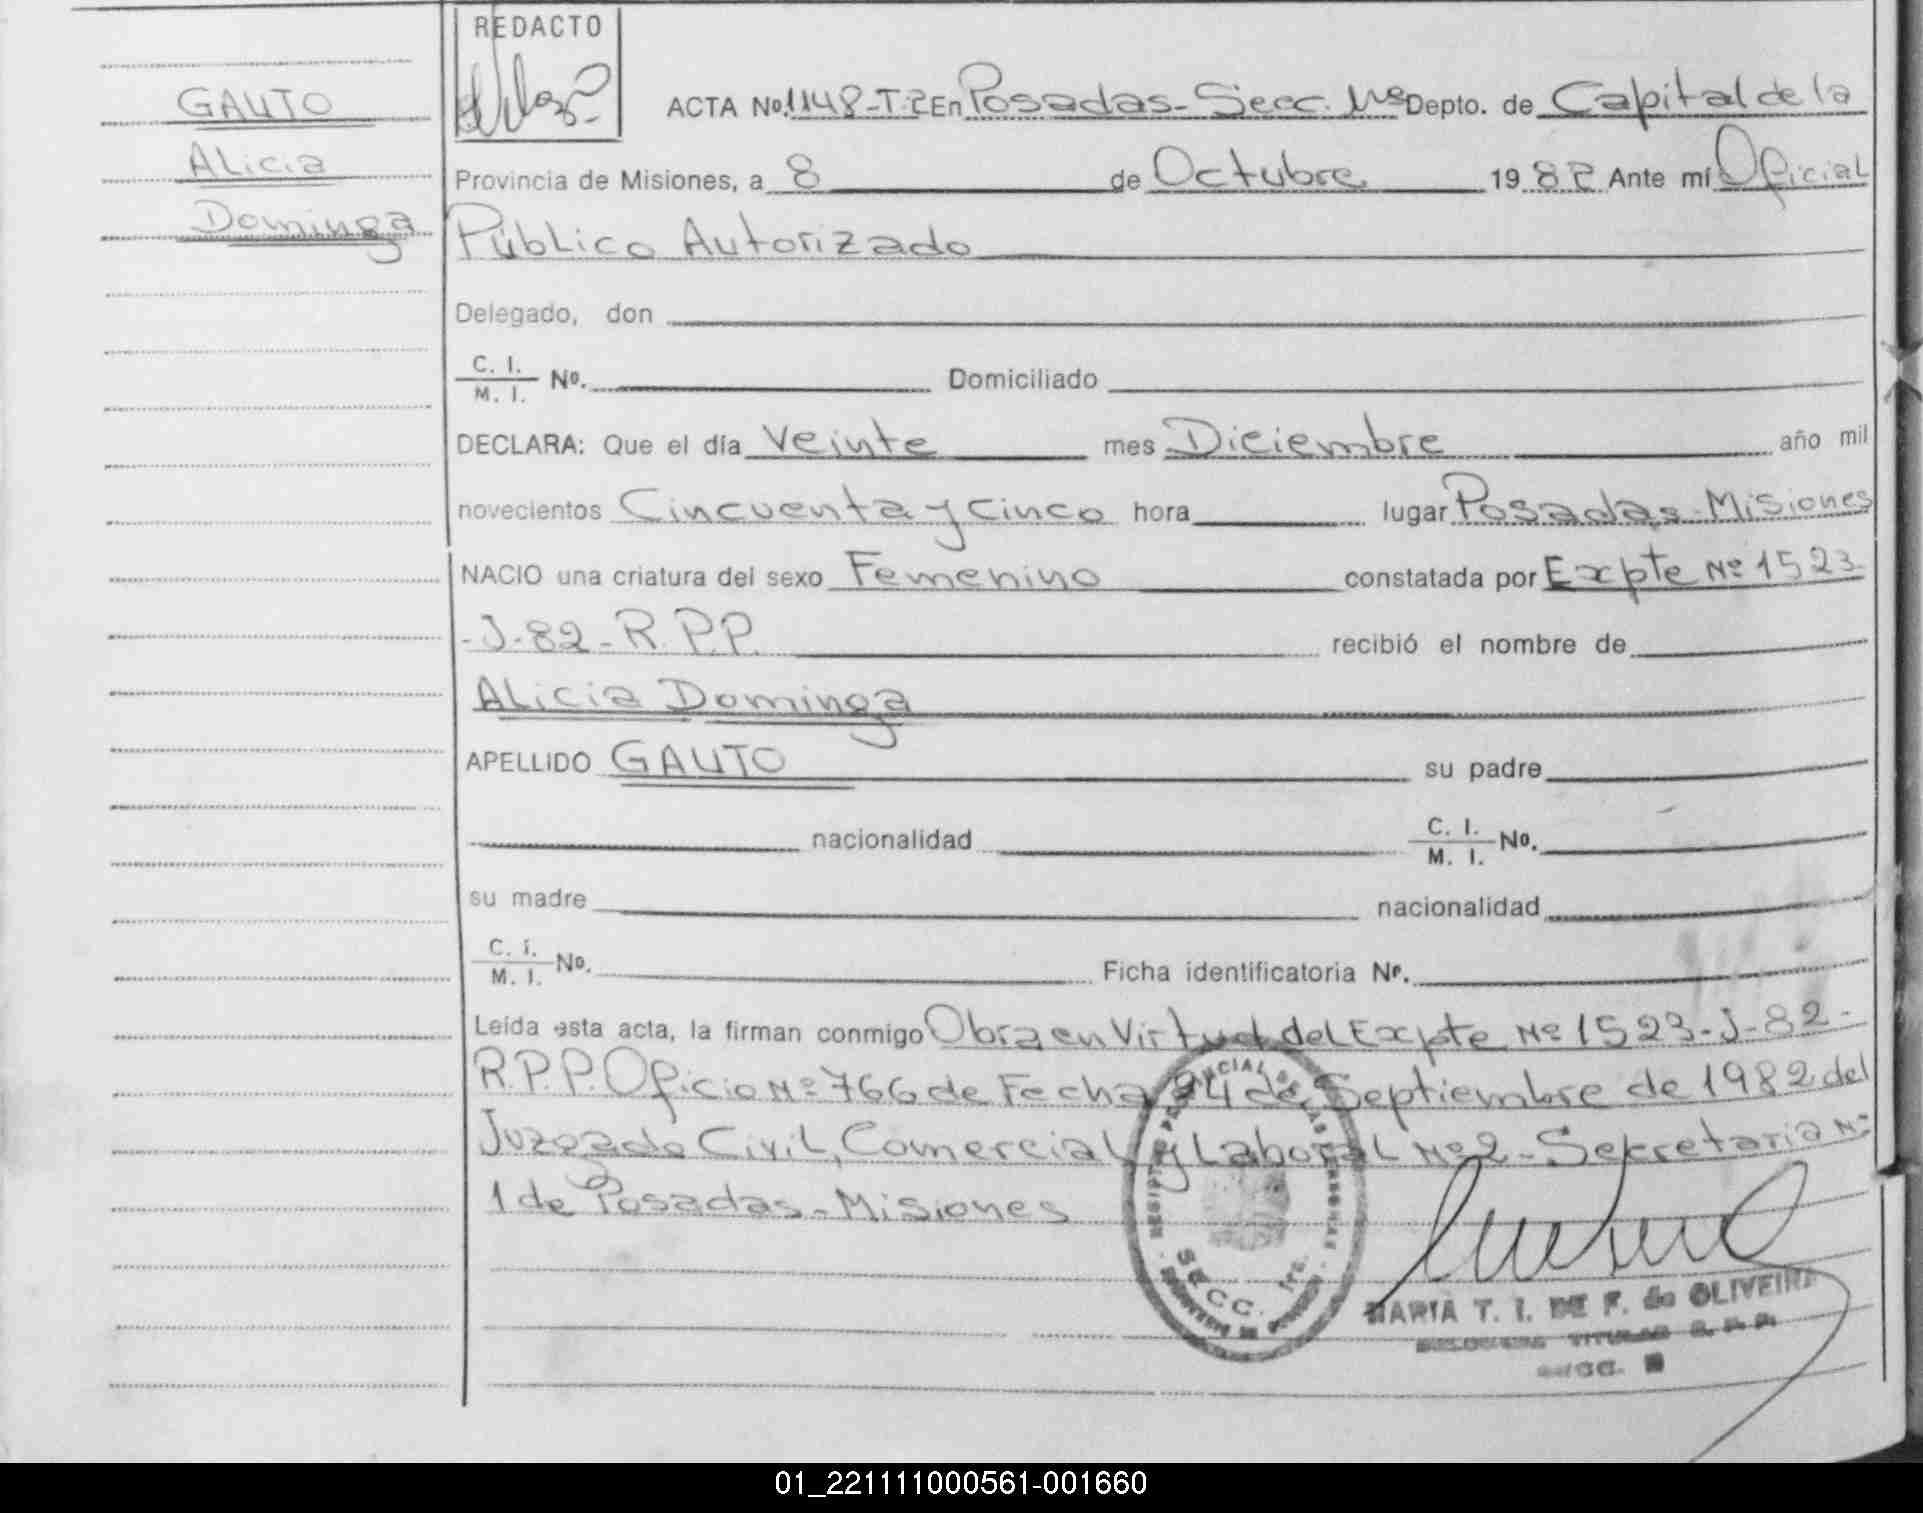 GAUTO
Alicia
Dominga
REDACTO
ACTA No. 1148-T.2 En Posadas-Secc. 1ra Depto. de Capital de la
Provincia de Misiones, a 8 de Octubre 1982 Ante mí Oficial
Público Autorizado
Delegado, don
C. I.
M. I. No. Domiciliado
DECLARA: Que el día Veinte mes Diciembre año mil
novecientos Cincuenta y Cinco hora lugar Posadas-Misiones
NACIO una criatura del sexo Femenino constatada por Expte Nº 1523
-J-82-R.P.P. recibió el nombre de
Alicia Dominga
APELLIDO GAUTO su padre
nacionalidad C. I.
M. I. No.
su madre nacionalidad
C. I.
M. I. No. Ficha identificatoria Nº.
Leída esta acta, la firman conmigo Obra en Virtud del Expte Nº 1523-J-82-
R.P.P. Oficio Nº 766 de Fecha 24 de Septiembre de 1982 del
Juzgado Civil, Comercial y Laboral Nº 2-Sekretaria Nº
1 de Posadas-Misiones
SECC. 1ra.
MARIA T. I. DE F. de OLIVEIRA
01_221111000561-001660